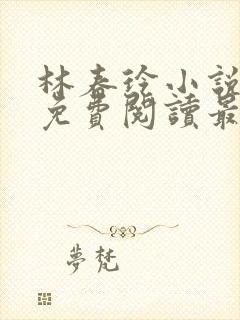 林春徐小說
免費閱讀最
夢梵